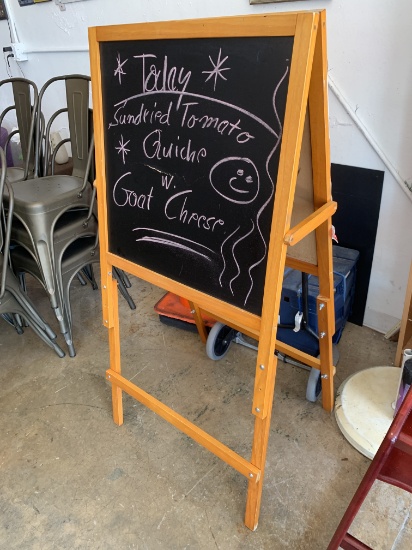 Today
Sundried Tomato
Quiche
w.
Goat Cheese